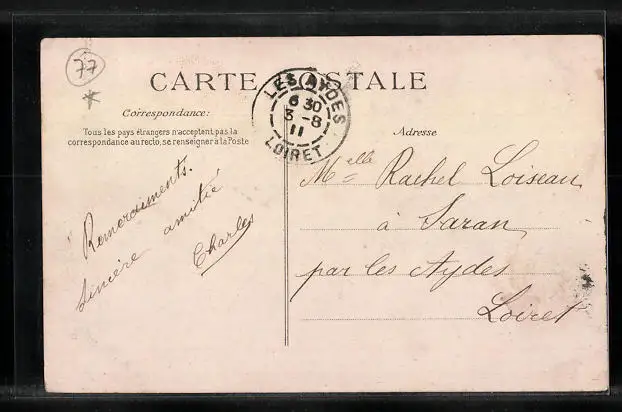 77
*
CARTE POSTALE
Correspondance:
Tous les pays étrangers n'acceptent pas la
correspondance au recto, se renseigner à la Poste
Remerciments.
Sincère amitié
Charles
LES AYDES
6 30
3 -8
11
LOIRET
Adresse
Melle Rachel Loiseau
à Saran
par les Aydes
Loiret